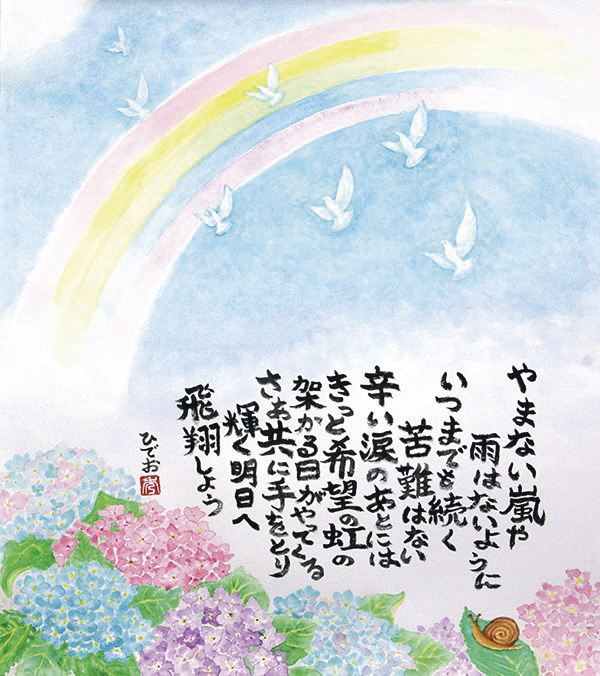 やまない嵐や
雨はないように
いつまでも続く
苦難はない
辛い涙のあとには
きっと希望の虹の
架かる日がやってくる
さあ共に手をとり
輝く明日へ
飛翔しよう
ひでお